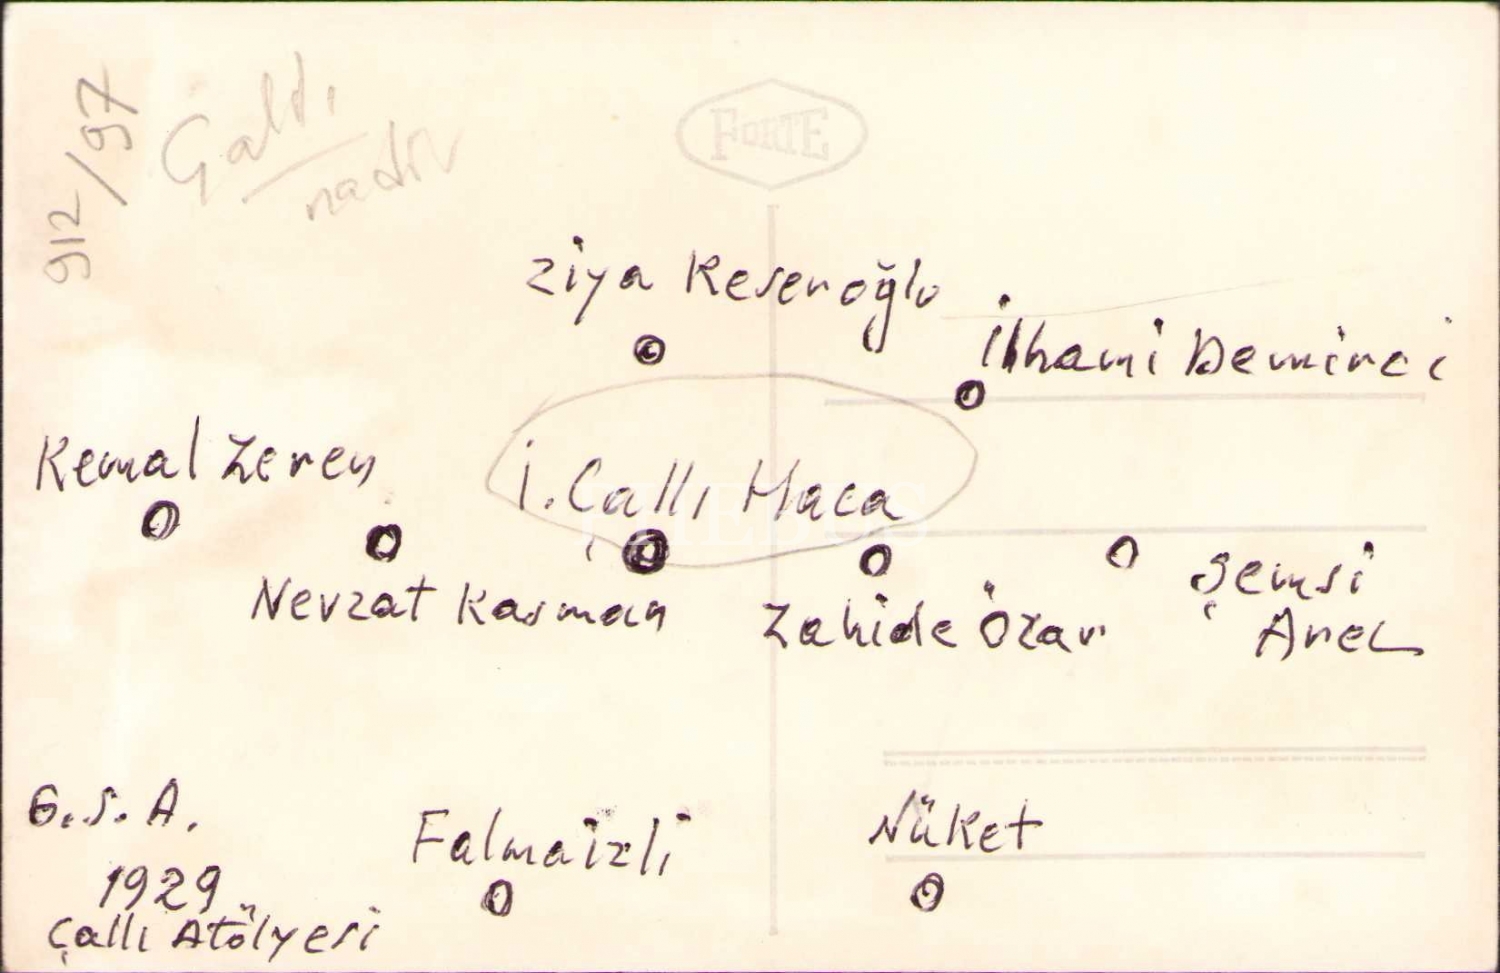 912/97
Çallı
nadir
FORTE
Ziya Keseroğlu
İlhami Demirci
Kemal Zeren
İ. Çallı Hoca
PHEBUS
Nevzat Kasman
Zahide Özar
Şemsi
Arel
G.S.A.
1929
Çallı Atölyesi
Nüket